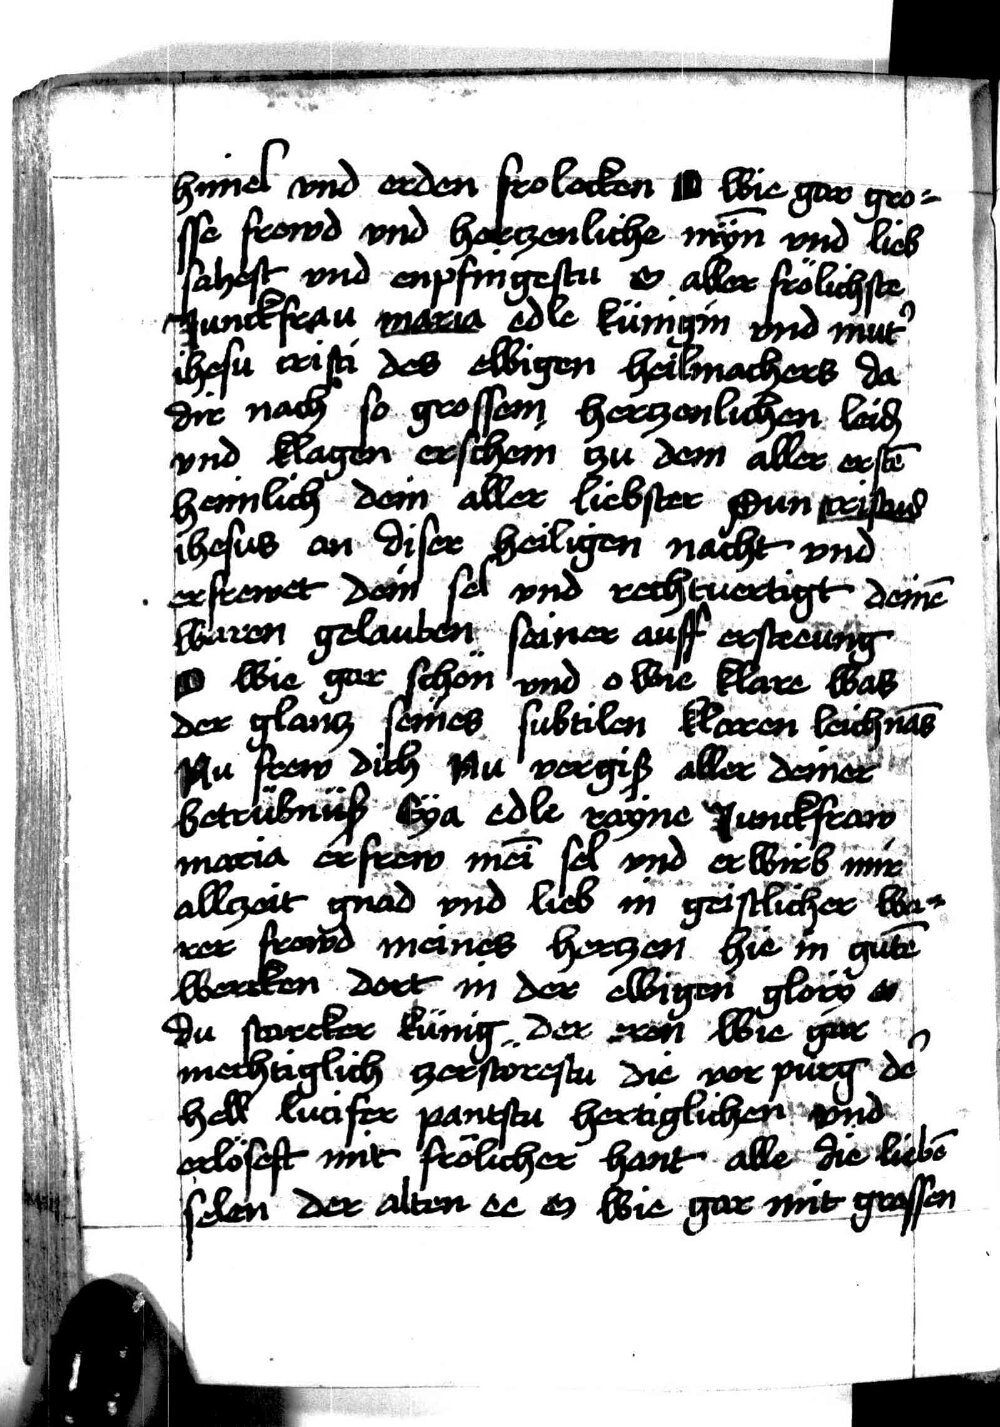 himel vnd erden frolocken O wie gar gro=
sse frewd vnd hertzenliche mÿn̄ vnd lieb
sahest vnd enpfingestu o aller frölichste
Junckfrau maria edle künigin vnd mut᷑
ihesu cristi des ewigen heilmachers da
dir nach so grossem hertzenlichen leid
vnd klagen erschein zu dem aller erstē
heimlich dein aller liebster Sun cristus
ihesus an diser heiligen nacht vnd
erfrewet dein sel vnd rechtuertigt deinē
waren gelauben seiner auff ersteung
O wie gar schön vnd o wie klare was
der glantz seines subtilen klaren leichnās
Nu frew dich Nu vergiß aller deiner
betrübnüß Eÿa edle rayne Junckfraw
maria erfrew mei͂ sel vnd erwirb mir
allczeit gnad vnd lieb in geistlicher wa=
rer frewd meines hertzen hie in gutē
wercken dort in der ewigen glory o
du starcker künig der eren wie gar
mechtiglich zerstörestu die vor purg de᷑
hell lucifer pantstu hertiglichen vnd
erlösest mit frölicher hant alle die liebē
selen der alten ee o wie gar mit grossen